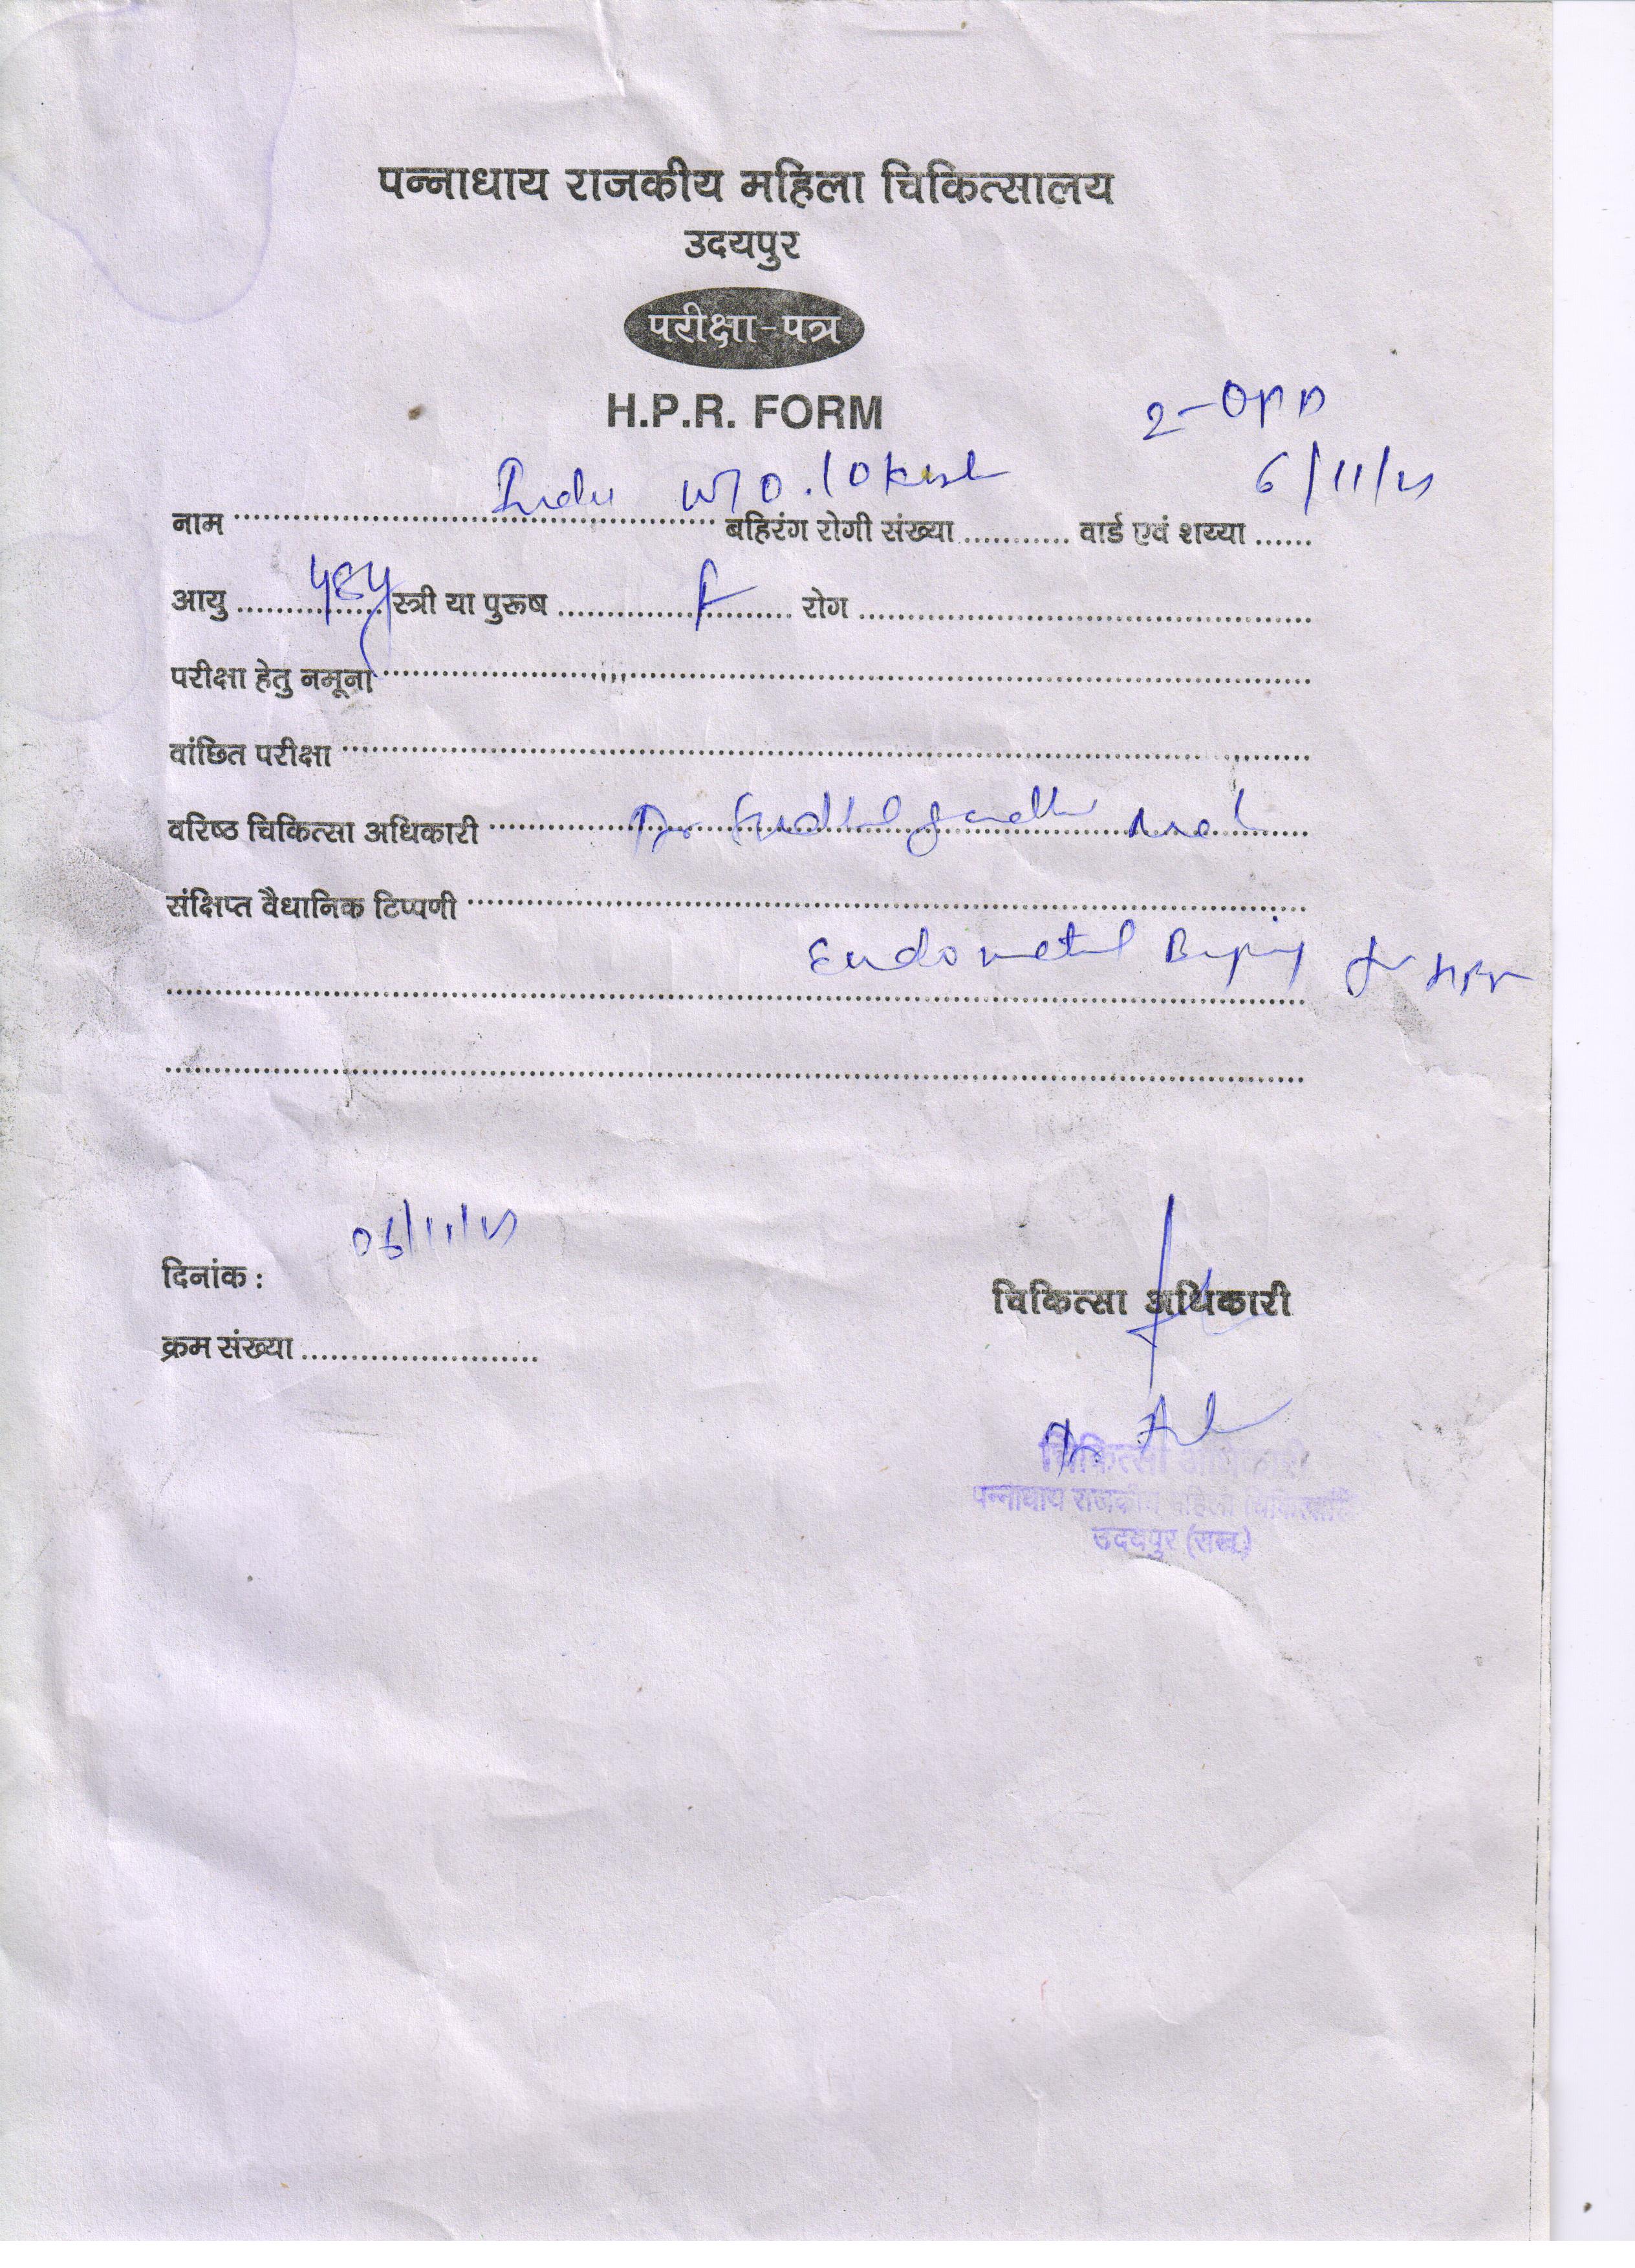 पन्नाधाय राजकीय महिला चिकित्सालय
उदयपुर
परीक्षा-पत्र
H.P.R. FORM
2-OPD
6/11/
नाम Indu W/O. lokesh बहिरंग रोगी संख्या वार्ड एवं शय्या
आयु 48y स्त्री या पुरूष F रोग
परीक्षा हेतु नमूना
वांछित परीक्षा
वरिष्ठ चिकित्सा अधिकारी Dr
संक्षिप्त वैधानिक टिप्पणी
Endometrial Biopsy for HPR
06/11/
दिनांक :
चिकित्सा अधिकारी
क्रम संख्या
Dr
चिकित्सा अधिकारी
पन्नाधाय राजकीय महिला
उदयपुर (राज.)